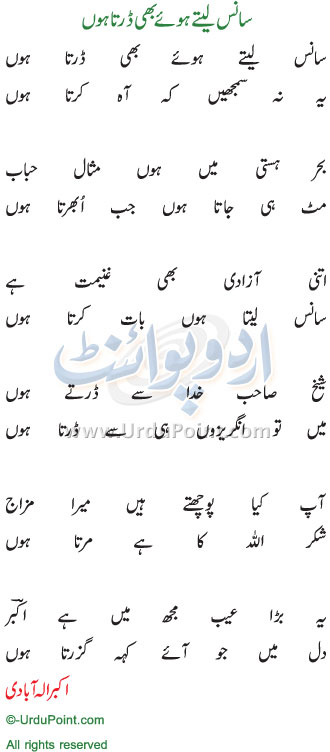 سانس لیتے ہوئے بھی ڈرتا ہوں
سانس لیتے ہوئے بھی ڈرتا ہوں
یہ نہ سمجھیں کہ آہ کرتا ہوں
بحر ہستی میں ہوں مثال حباب
مٹ ہی جاتا ہوں جب اُبھرتا ہوں
اتنی آزادی بھی غنیمت ہے
سانس لیتا ہوں بات کرتا ہوں
اردو پوائنٹ
شیخ صاحب خدا سے ڈرتے ہوں
www.UrduPoint.com
میں تو انگریزوں ہی سے ڈرتا ہوں
آپ کیا پوچھتے ہیں میرا مزاج
شکر اللہ کا ہے مرتا ہوں
یہ بڑا عیب مجھ میں ہے اکبرؔ
دل میں جو آئے کہہ گزرتا ہوں
اکبر الہ آبادی
©-UrduPoint.com
All rights reserved